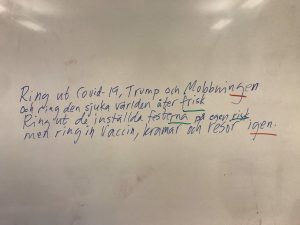 Ring ut Covid-19, Trump och Mobbningen
och ring den sjuka världen åter frisk
Ring ut de inställda festerna på egen risk
men ring in Vaccin, kramar och resor igen.